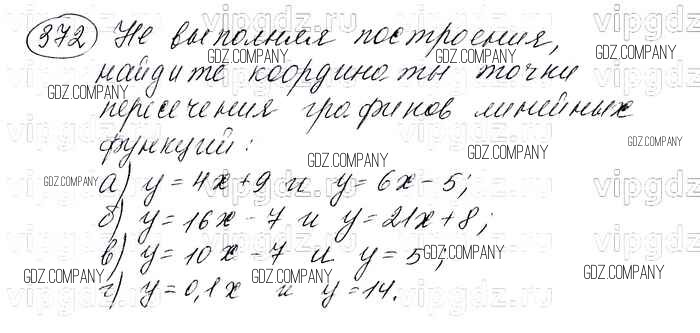 372 Не выполняя построения,
найдите координаты точки
пересечения графиков линейных
функций:
а) y = 4x + 9 и y = 6x - 5;
б) y = 16x - 7 и y = 21x + 8;
в) y = 10x - 7 и y = 5;
г) y = 0,1x и y = 14.
GDZ.COMPANY
vipgdz.ru